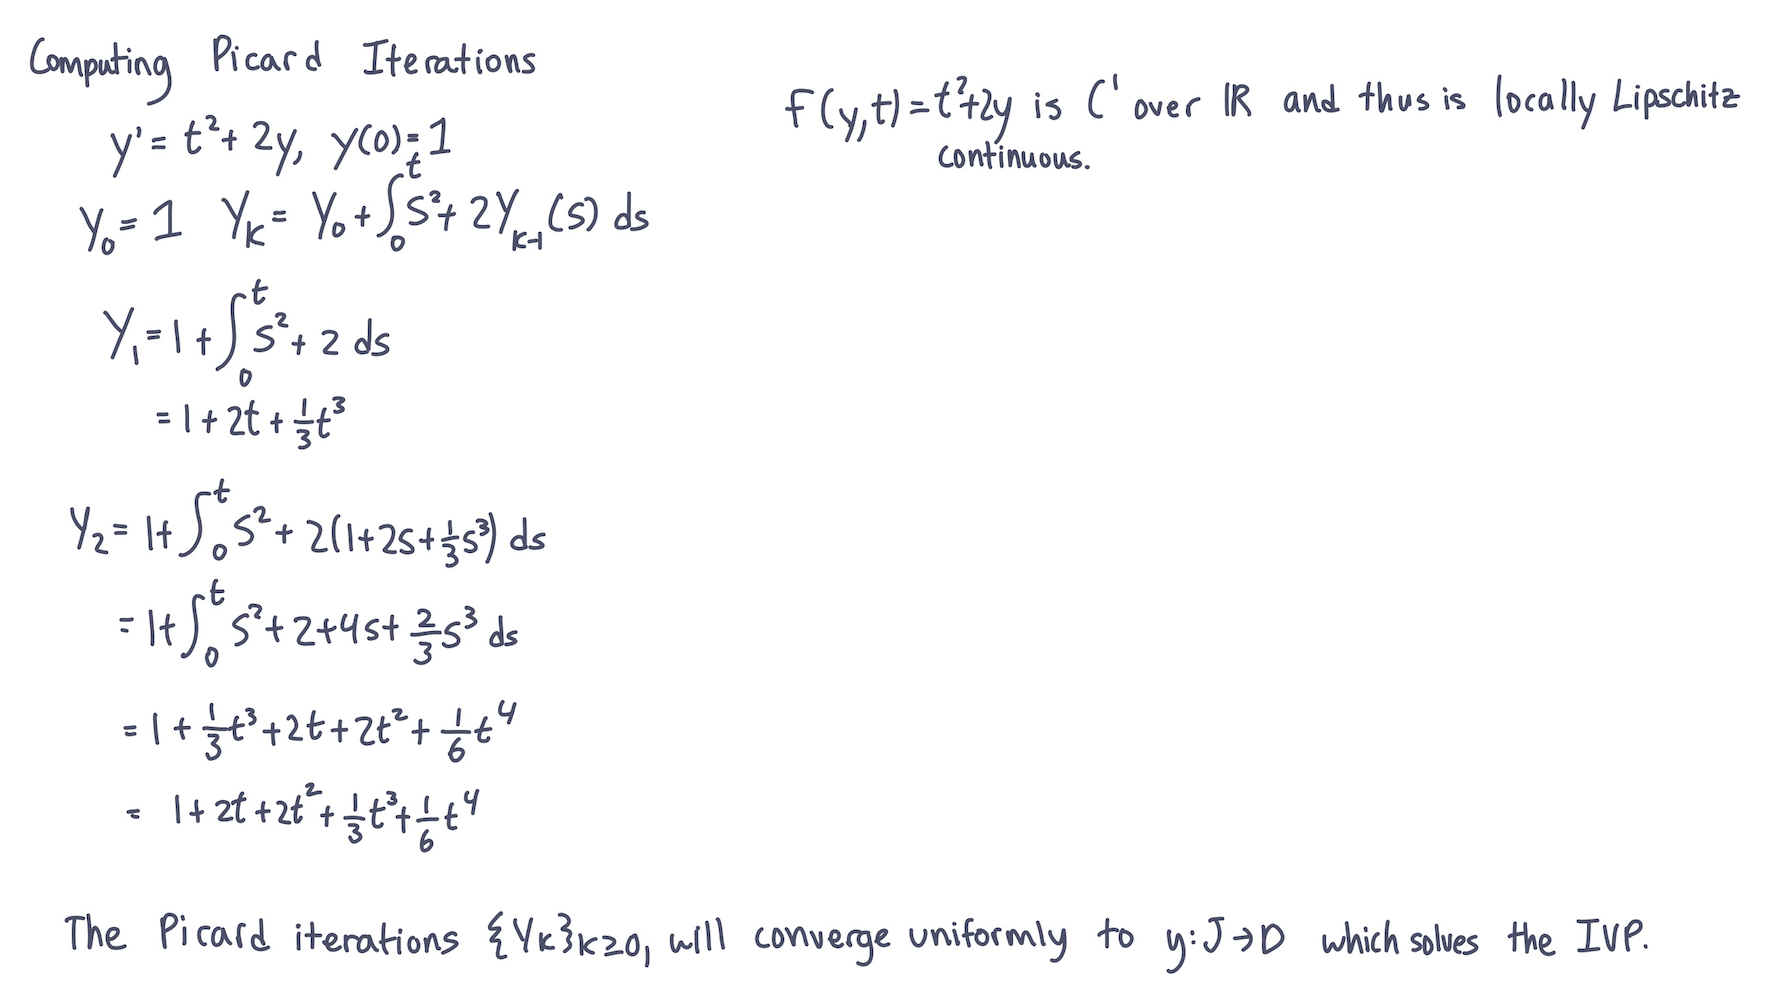 Computing Picard Iterations
y' = t² + 2y, y(0) = 1
Y₀ = 1 Yₖ = Y₀ + ∫₀ᵗ s² + 2Yₖ₋₁(s) ds
Y₁ = 1 + ∫₀ᵗ s² + 2 ds
= 1 + 2t + 1/3 t³
Y₂ = 1 + ∫₀ᵗ s² + 2(1 + 2s + 1/3 s³) ds
= 1 + ∫₀ᵗ s² + 2 + 4s + 2/3 s³ ds
= 1 + 1/3 t³ + 2t + 2t² + 1/6 t⁴
= 1 + 2t + 2t² + 1/3 t³ + 1/6 t⁴
F(y,t) = t² + 2y is C¹ over ℝ and thus is locally Lipschitz
continuous.
The Picard iterations {Yₖ}ₖ≥₀, will converge uniformly to y: J → D which solves the IVP.